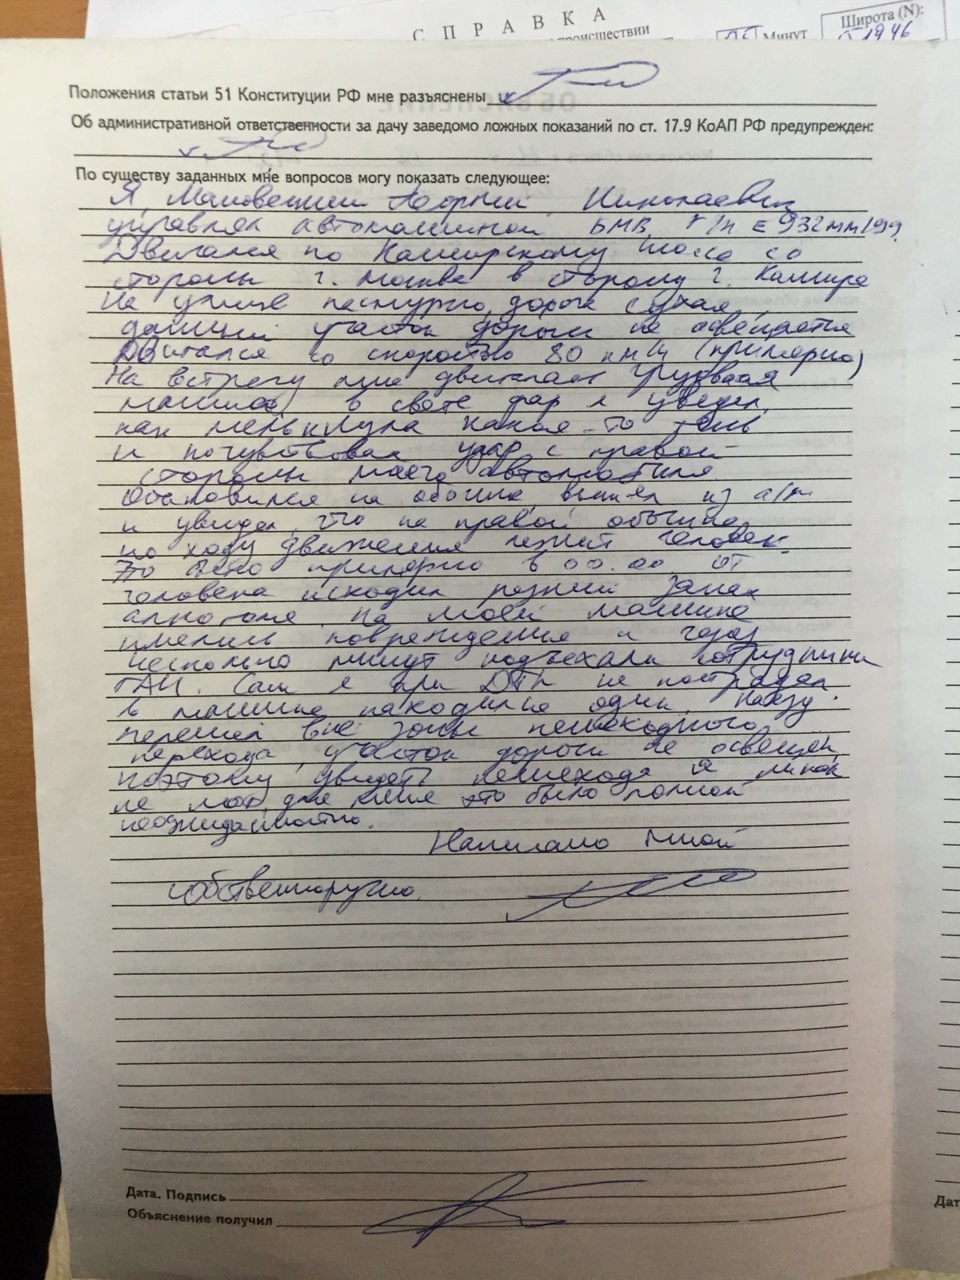 С П Р А В К А
происшествии
Минут
Широта (N):
Положения статьи 51 Конституции РФ мне разъяснены
Об административной ответственности за дачу заведомо ложных показаний по ст. 17.9 КоАП РФ предупрежден:
По существу заданных мне вопросов могу показать следующее:
Я, Николаевич
управлял автомашиной БМВ г/н Е 932 мм/199.
Двигался по Каширскому шоссе со
стороны г. Москве в сторону г. Кашира
На улице пасмурно, дорога сухая,
данный участок дороги не освещается
Двигался со скоростью 80 км/ч (примерно)
На встречу мне двигалась грузовая
машина, в свете фар я увидел,
как мелькнула какая-то тень
и почувствовал удар с правой
стороны моего автомобиля
Остановился на обочине, вышел из а/м
и увидел, что на правой обочине
по ходу движения лежит человек.
Это было примерно в 00.00. от
человека исходил резкий запах
алкоголя. На моей машине
имелись повреждения и через
несколько минут подъехали сотрудники
ГАИ. Сам я при ДТП не пострадал
в машине находился один.
перешел вне зоны пешеходного
перехода, участок дороги не освещен
поэтому увидеть пешехода я никак
не мог, для меня это было полной
неожиданностью.
Написано мной
собственноручно.
Дата. Подпись
Объяснение получил
Дат